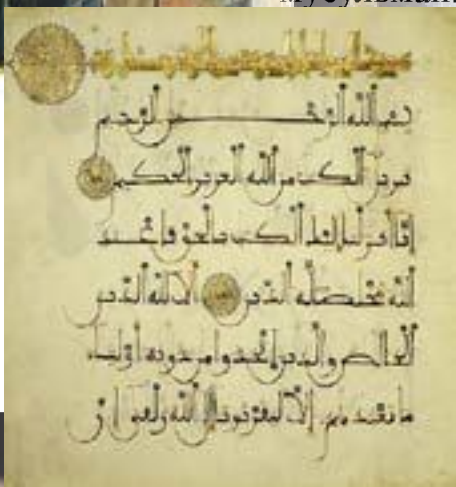 بسم الله الرحمن الرحيم
تنزيل الكتب من الله العزيز الحكيم
انا انزلنا اليك الكتب بالحق فاعبد
الله مخلصا له الدين الا لله الدين
الخالص والذين اتخذوا من دونه اولياء
ما نعبدهم الا ليقربونا الى الله زلفى ان